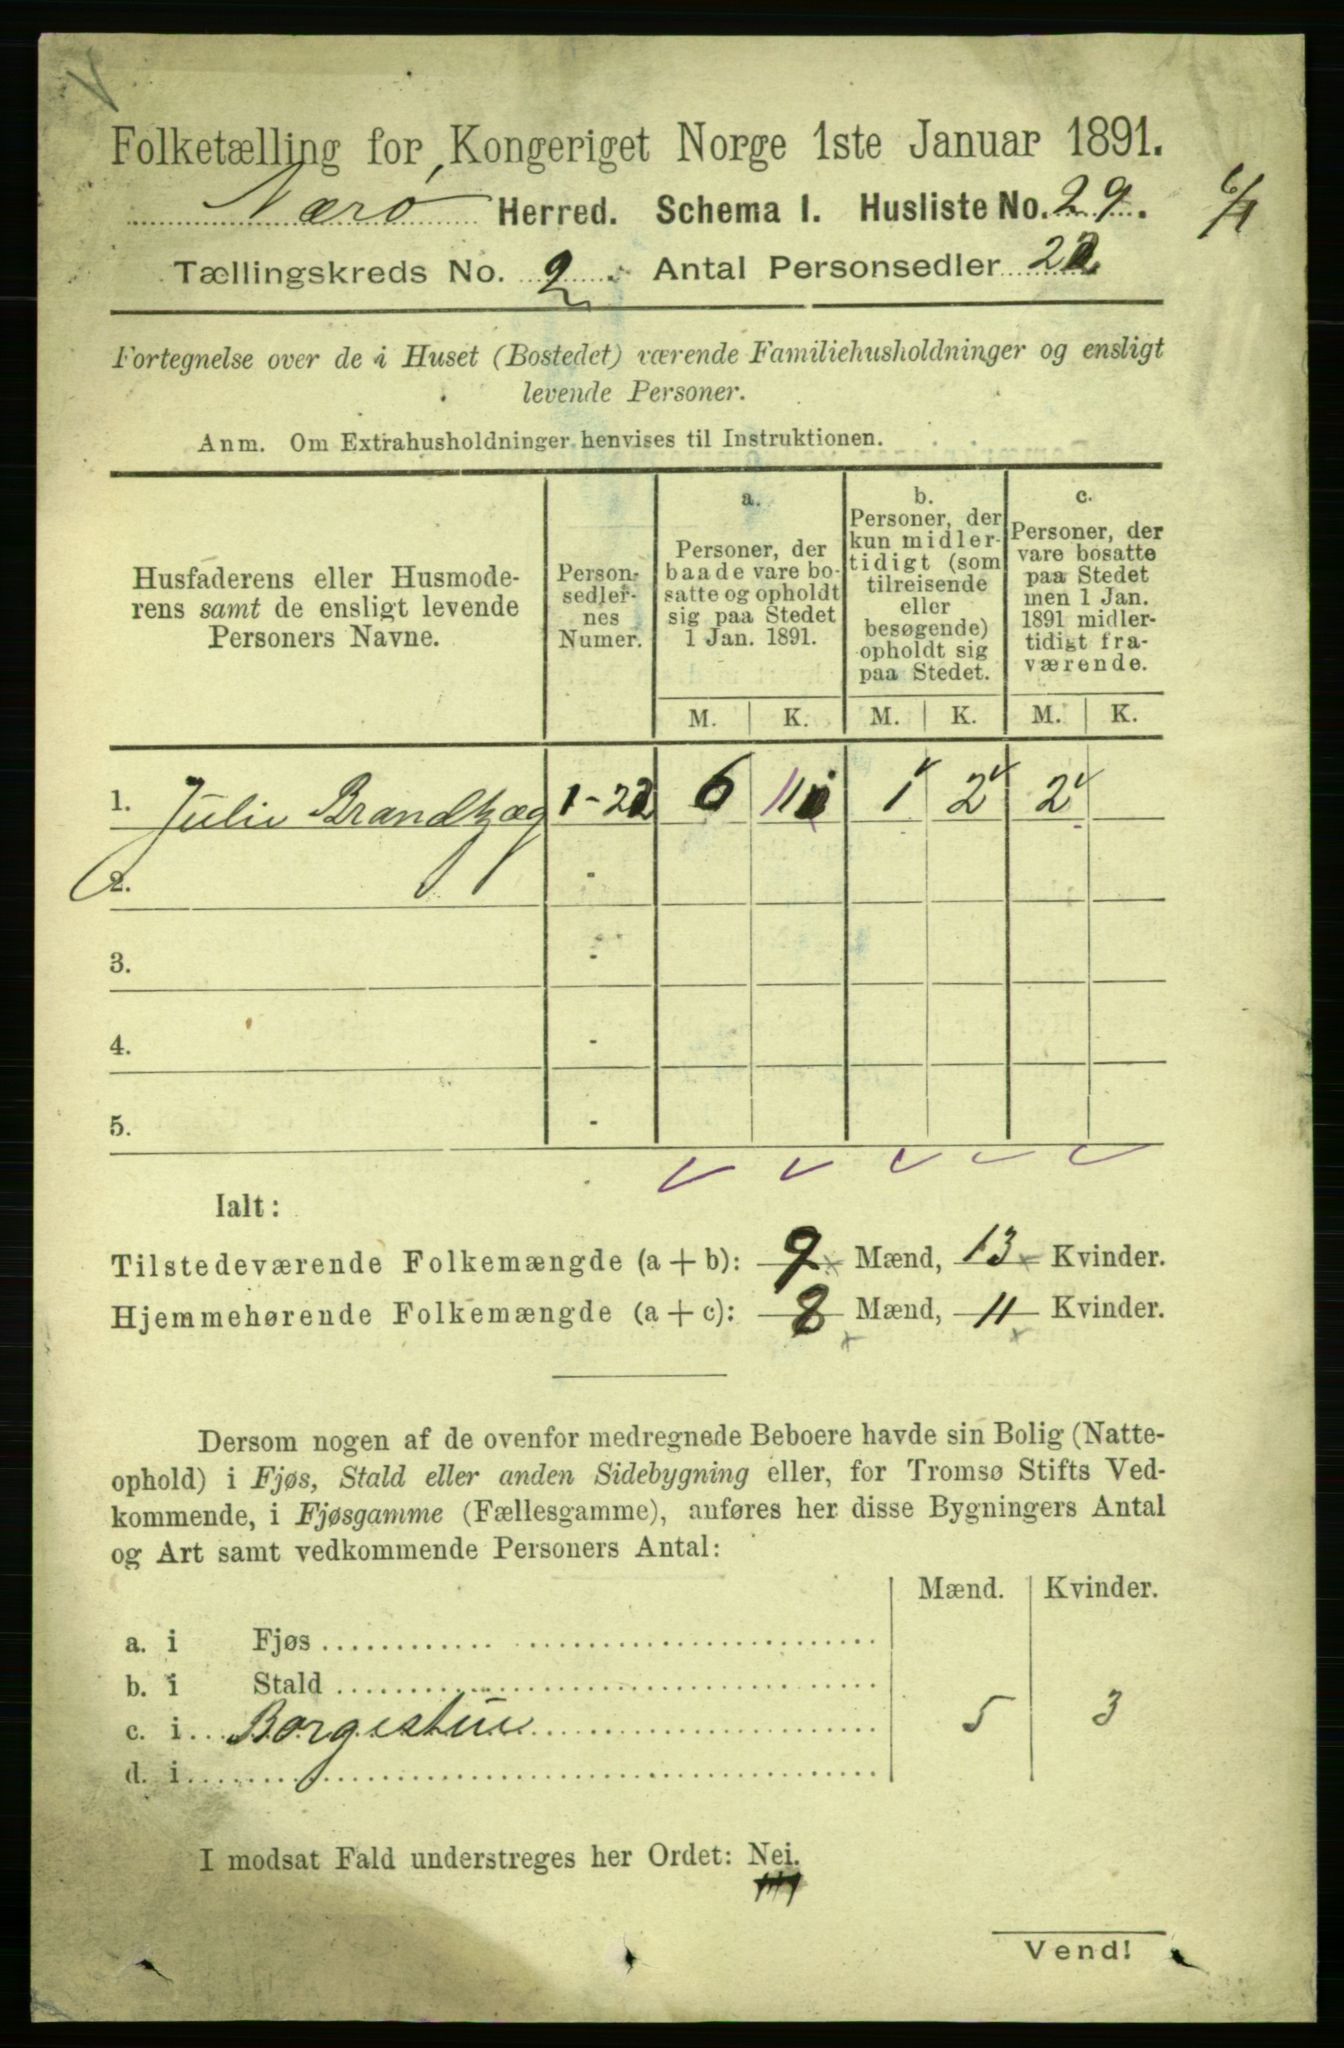 Folketælling for Kongeriget Norge 1ste Januar 1891.
Nærø Herred. Schema 1. Husliste No. 29.
6/1
Tællingskreds No. 2. Antal Personsedler 22.
Fortegnelse over de i Huset (Bostedet) værende Familiehusholdninger og ensligt
levende Personer.
Anm. Om Extrahusholdninger henvises til Instruktionen.
Husfaderens eller Husmode-
rens samt de ensligt levende
Personers Navne.
Person-
sedler-
nes
Numer.
a.
Personer, der
baade vare bo-
satte og opholdt
sig paa Stedet
1 Jan. 1891.
b.
Personer, der
kun midler-
tidigt (som
tilreisende
eller
besøgende)
opholdt sig
paa Stedet.
c.
Personer, der
vare bosatte
paa Stedet
men 1 Jan.
1891 midler-
tidigt fra-
værende.
M. K. M. K. M. K.
1. Julie Brandtzæg 1-22 6 11 1 2 2
2. -
3. -
4. -
5. -
Ialt:
Tilstedeværende Folkemængde (a + b): 9 Mænd, 13 Kvinder.
Hjemmehørende Folkemængde (a + c): 8 Mænd, 11 Kvinder.
Dersom nogen af de ovenfor medregnede Beboere havde sin Bolig (Natte-
ophold) i Fjøs, Stald eller anden Sidebygning eller, for Tromsø Stifts Ved-
kommende, i Fjøsgamme (Fællesgamme), anføres her disse Bygningers Antal
og Art samt vedkommende Personers Antal:
Mænd. Kvinder.
a. i Fjøs
b. i Stald
c. i Borgestue 5 3
d. i
I modsat Fald understreges her Ordet: Nei.
Vend!